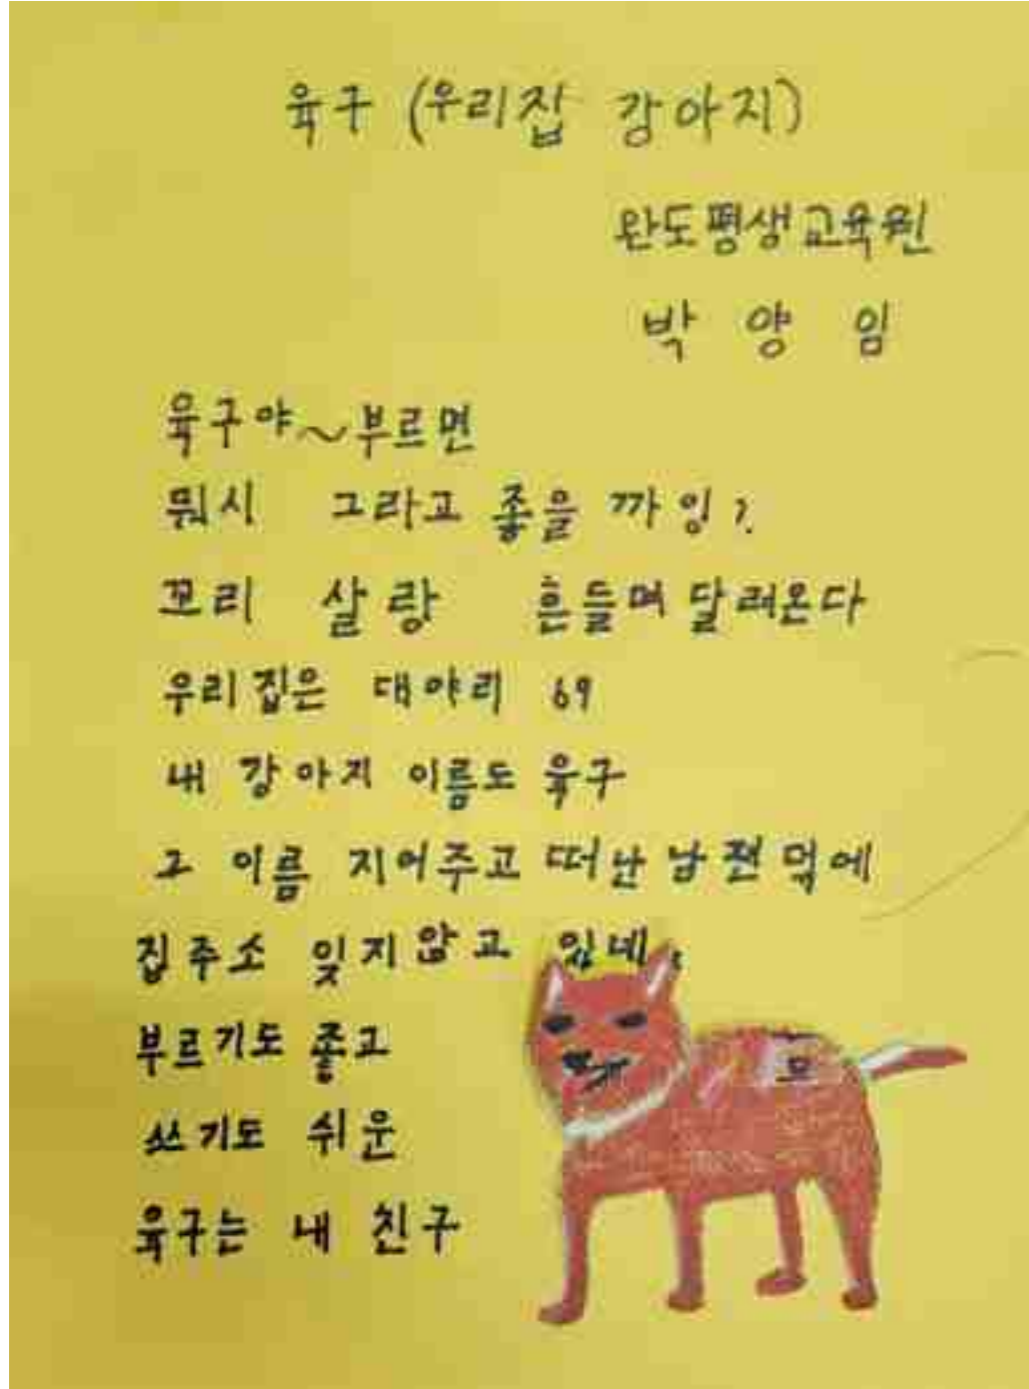 육구 (우리집 강아지)
완도평생교육원
박 양 임
육구야~부르면
뭐시 그라고 좋을 까잉?
꼬리 살랑 흔들며 달려온다
우리집은 대야리 69
내 강아지 이름도 육구
그 이름 지어주고 떠난 남편덕에
집주소 잊지않고 있네.
부르기도 좋고
쓰기도 쉬운
육구는 내 친구